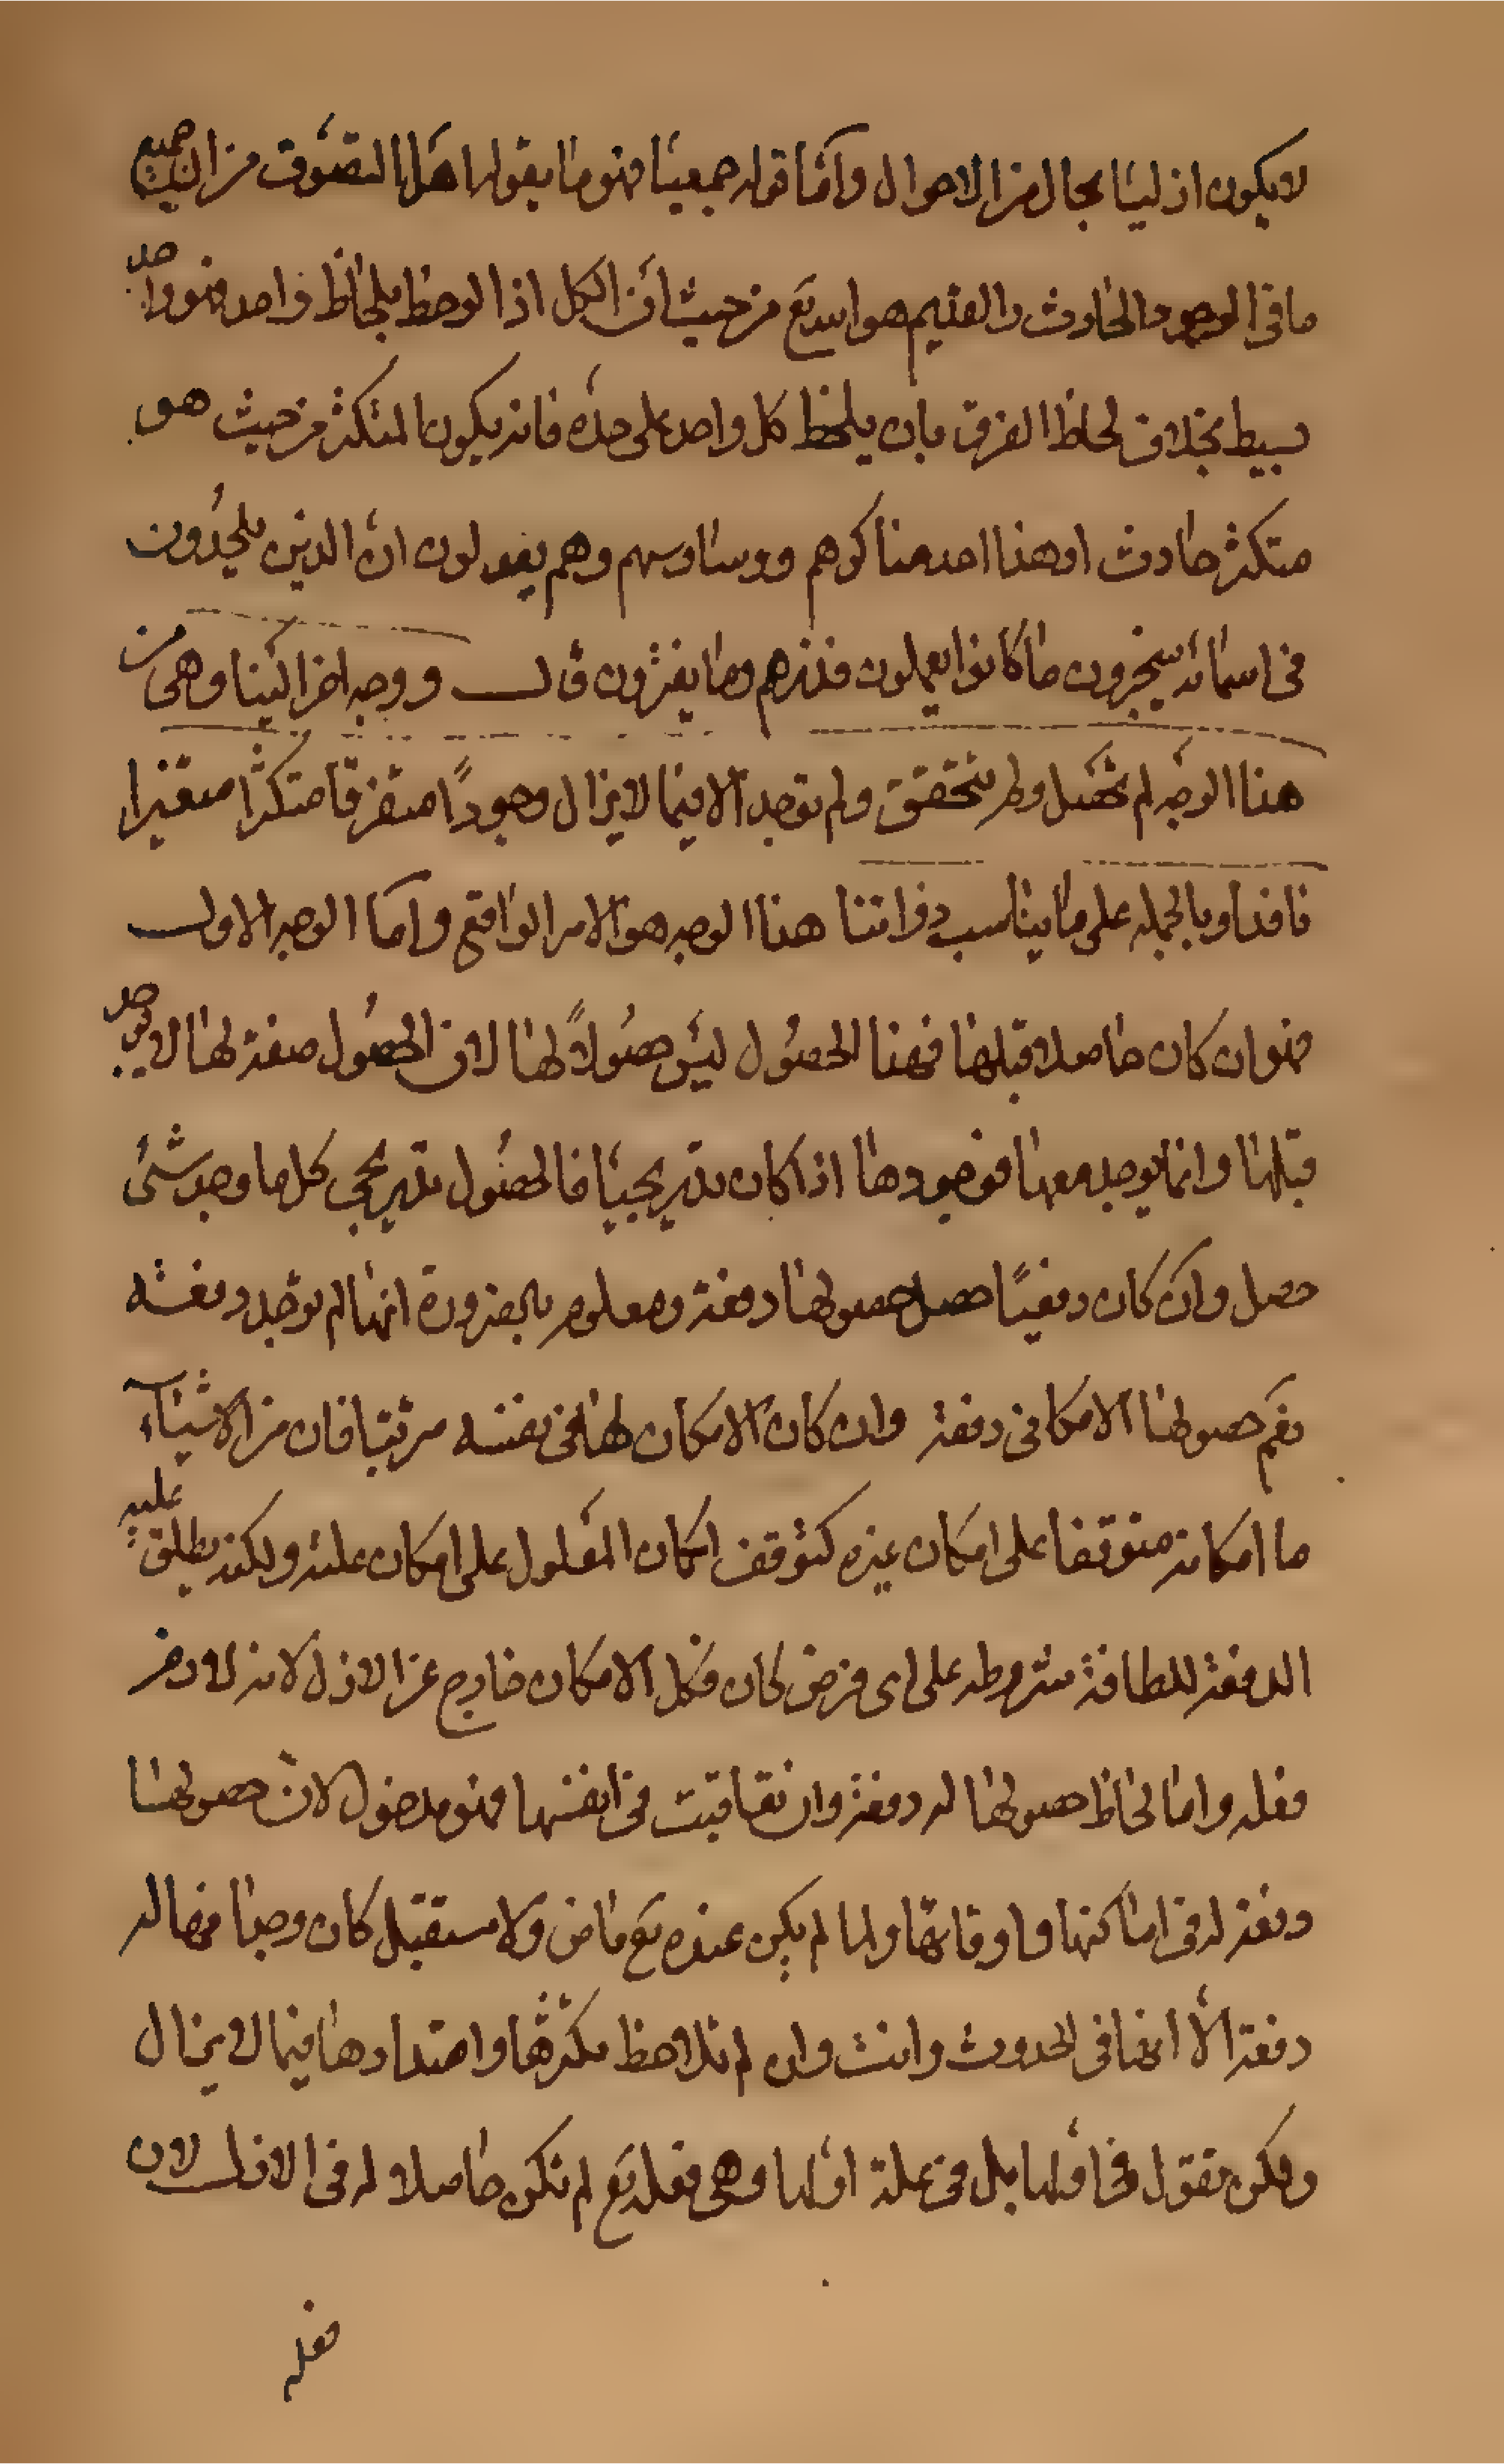 لا يكون ازليا بحال من الاحوال وامّا قوله جمعيّا فهو ما يقوله اهل التصوّف من ان جميع
ما فى الوجود الحادث والقديم هو الله تع من حيث انّ الكل اذا لوحظ بلحاظ واحد فهو واحد
بسيط بخلاف لحاظ الفرق بان يلحظ كل واحد على حدّه فانه يكون المتكثر من حيث هو
متكثر حادث وهذا احد مناكرهم ووساوسهم وهم يعدلون انّ الذين يلحدون
فى اسمائه سيجزون ما كانوا يعملون فذرهم وما يفترون قال ووجه اخر الينا وهى من
هذا الوجه لم تحصل ولم تتحقق ولم توجد الا فيما لا يزال وجودًا متفرقا متكثرا متغيرا
نافدا وبالجملة على ما يناسب ذواتنا هذا الوجه هو الامر الواقع وامّا الوجه الاول
فهو ان كان حاصلا قبلها فهذا الحصول ليس حصولاً لها لان الحصول صفة لها لا يوجد
قبلها وانما يوجد معها فوجودها اذا كان تدريجيّا فالحصول تدريجى كل ما وجد شئ
حصل وان كان دفعيًا حصل حصولها دفعة ومعلوم بالضرورة انها لم توجد دفعة
نعم حصولها الامكانى دفعة وان كان الامكان لها فى نفسه مرتبا فان من الاشياء
ما امكانه متوقفا على امكان غيره كتوقف امكان المعلول على امكان علته ولكنه يطلق عليه
الدفعة للطافة شروطه على اى فرض كان فكل الامكان خارج عن الازل لانه لا من
فعله وامّا لحاظ حصولها له دفعة وان تعاقبت فى انفسها فهو مدخول لانّ حصولها
دفعة له فى اماكنها واوقاتها ولما لم يكن عنده تع ماض ولا مستقبل كان وجدانها له
دفعة الّا انها فى الحدوث وانت وان لم تلاحظ تكثرها وامتدادها فيما لا يزال
ولكن نقول فى اوّلها بل فى علة اوّلها وهى فعله تع لم تكن حاصلا له فى الازل لان
فعله